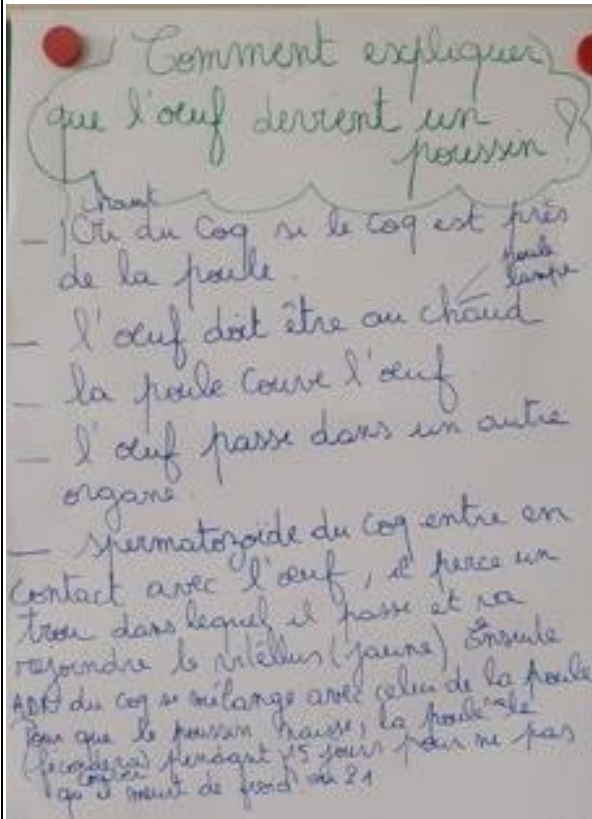 Comment expliquer
que l'œuf devient un
poussin ?
chant
- Cri du coq si le coq est près
de la poule.
poule
lampe
- l'œuf doit être au chaud
- la poule couve l'œuf
- l'œuf passe dans un autre
organe.
- spermatozoïde du coq entre en
contact avec l'œuf, il perce un
trou dans lequel il passe et va
rejoindre le vitellus (jaune) Ensuite
ADN du coq se mélange avec celui de la poule
Pour que le poussin naisse, la poule le
(fécondera) pendant 15 jours pour ne pas
couver
qu'il meurt de froid ou 21